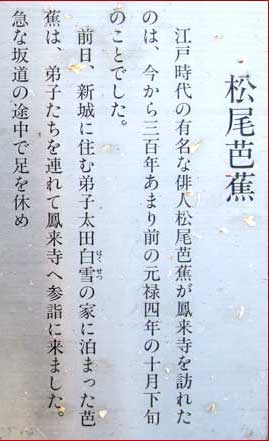 松尾芭蕉
江戸時代の有名な俳人松尾芭蕉が鳳来寺を訪れた
のは、今から三百年あまり前の元禄四年の十月下旬
のことでした。
前日、新城に住む弟子太田白雪の家に泊まった芭
はくせつ
蕉は、弟子たちを連れて鳳来寺へ参詣に来ました。
急な坂道の途中で足を休め